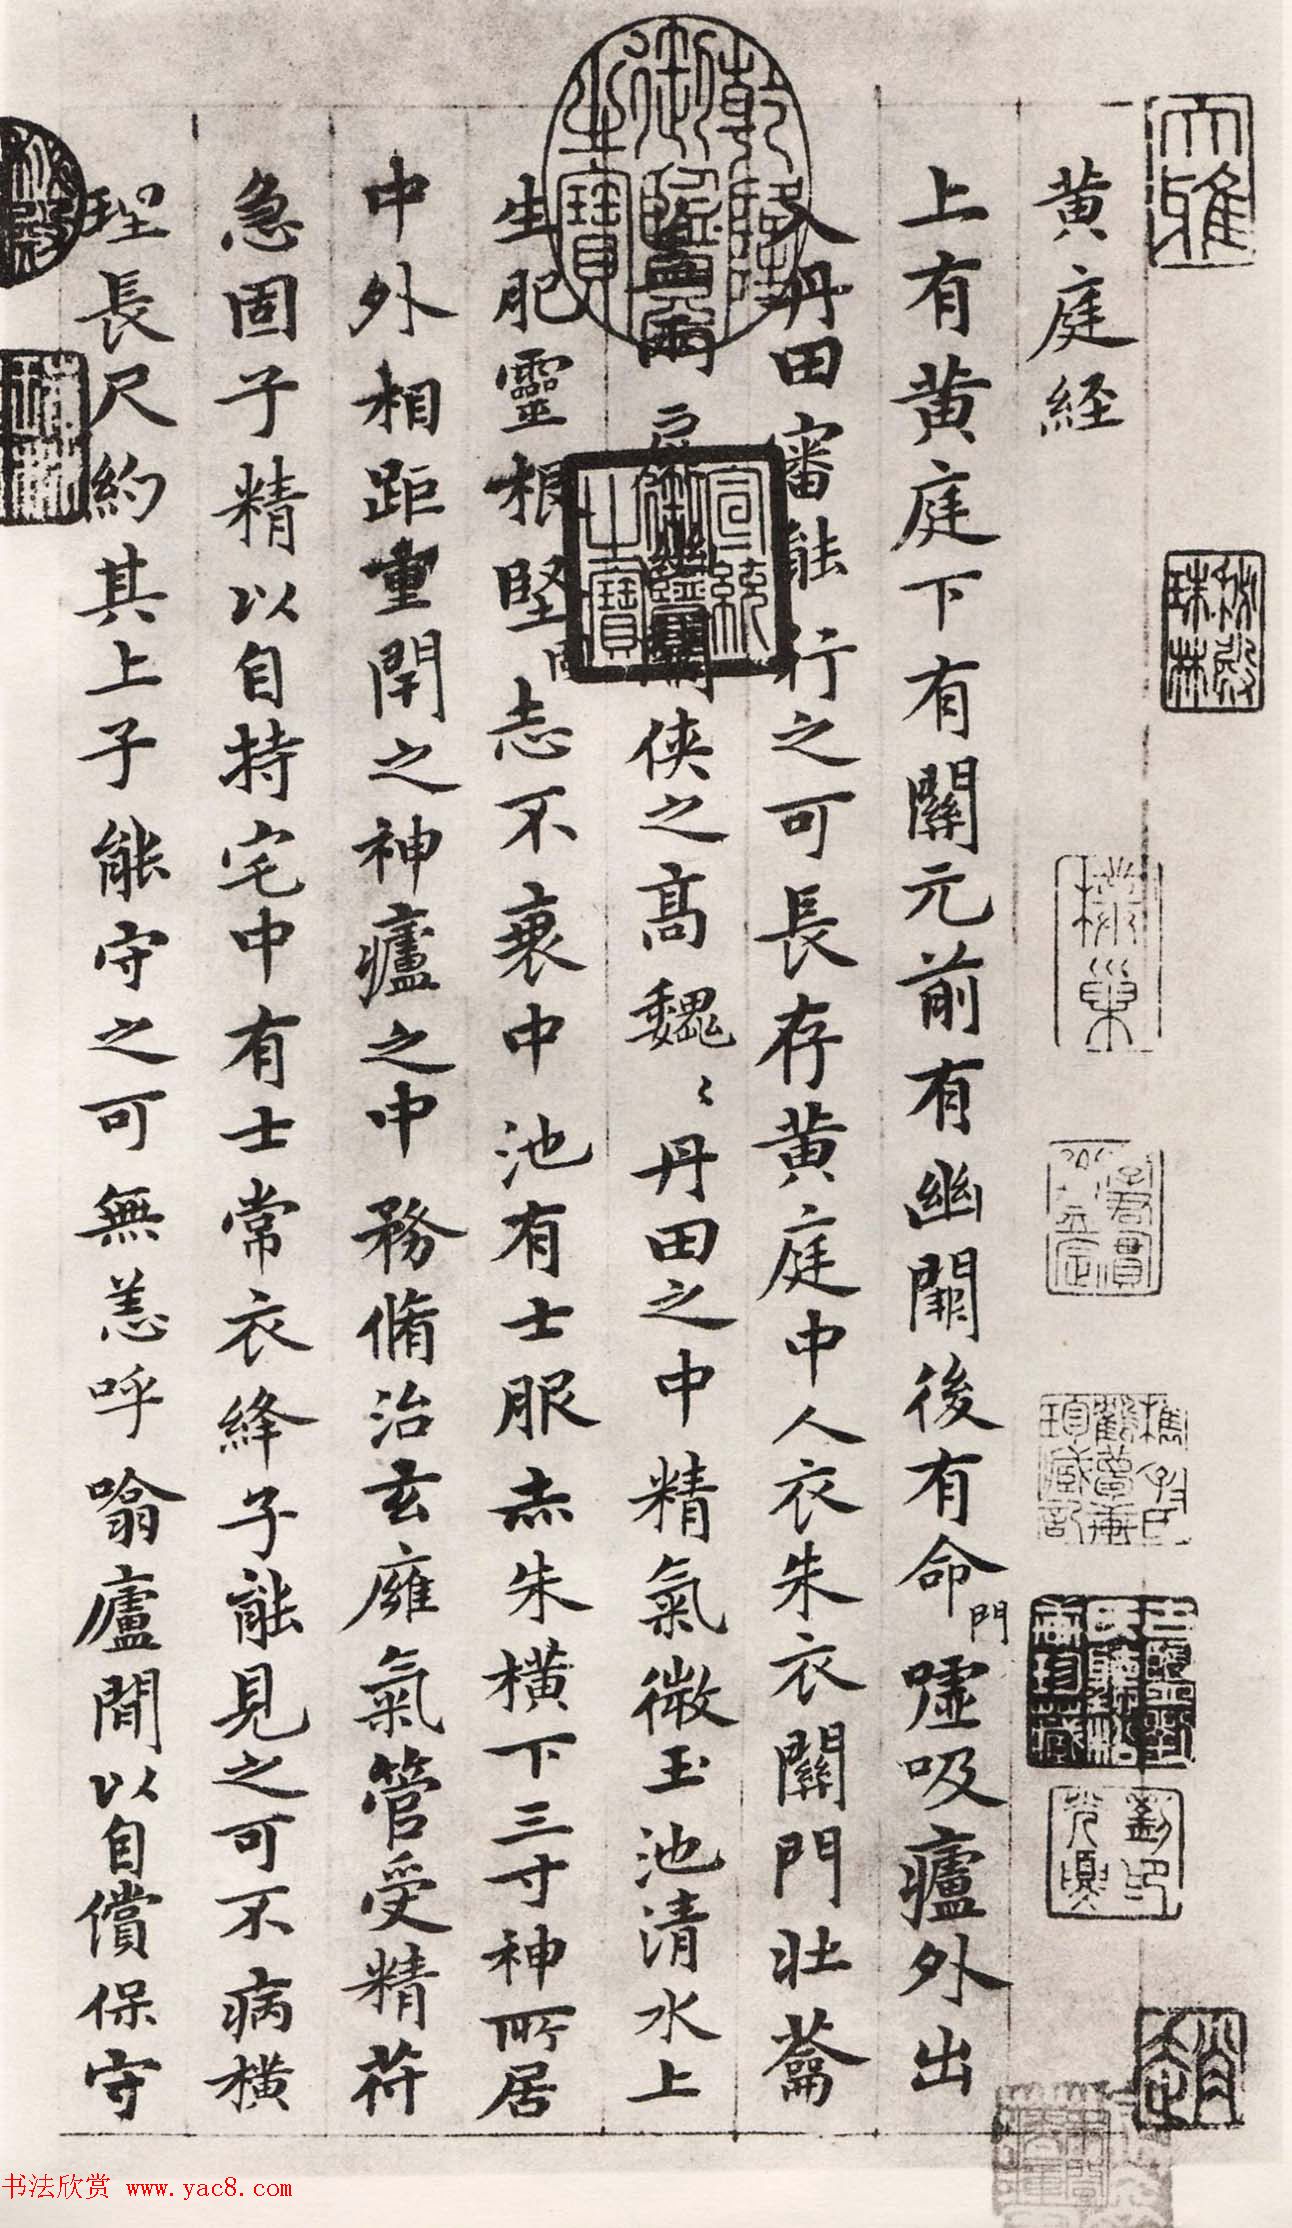 黄庭经
上有黄庭下有關元前有幽闕後有命門嘘吸廬外出
入丹田審能行之可長存黄庭中人衣朱衣關門壯蘥
兩扉幽闕俠之高魏〻丹田之中精氣微玉池清水上
生肥靈根堅固志不衰中池有士服赤朱横下三寸神所居
中外相距重閇之神廬之中務脩治玄廱氣管受精苻
急固子精以自持宅中有士常衣絳子能見之可不病横
理長尺約其上子能守之可無恙呼噏廬間以自償保守
大雅
秘殿珠林
樵巢
乾隆御覽之寶
宣統御覽之寶
趙
书法欣赏 www.yac8.com